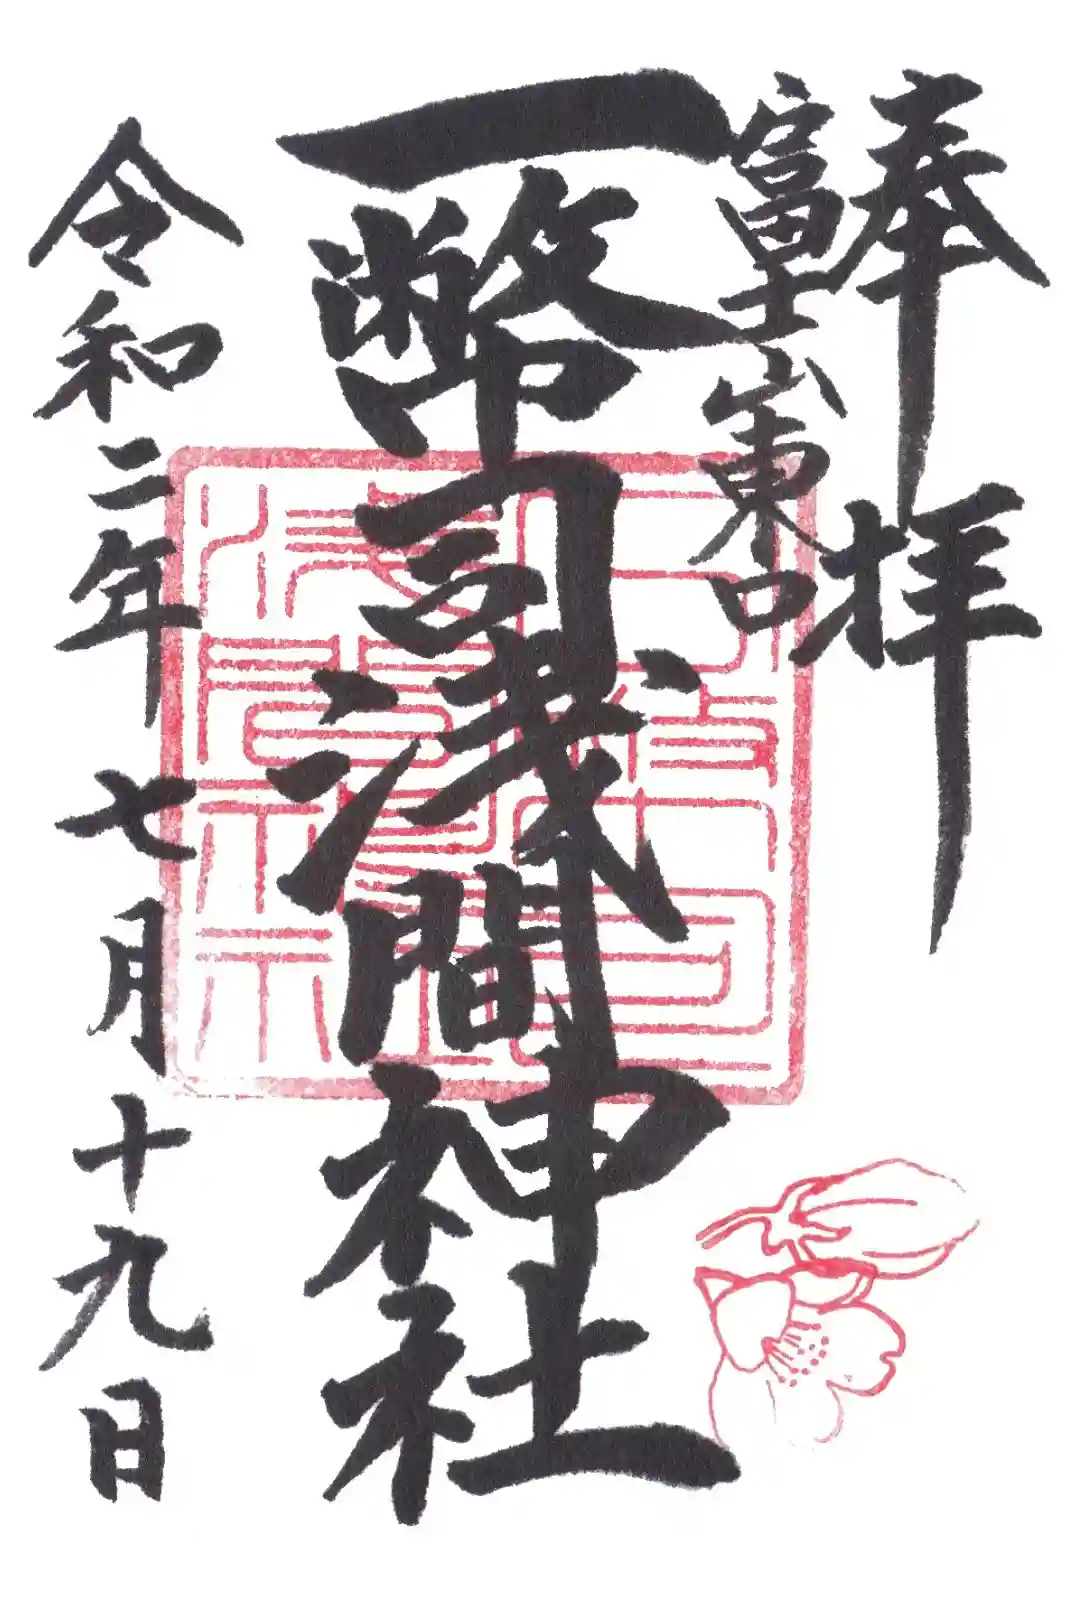 奉拝
富士山東口
一幣司浅間神社
令和二年七月十九日